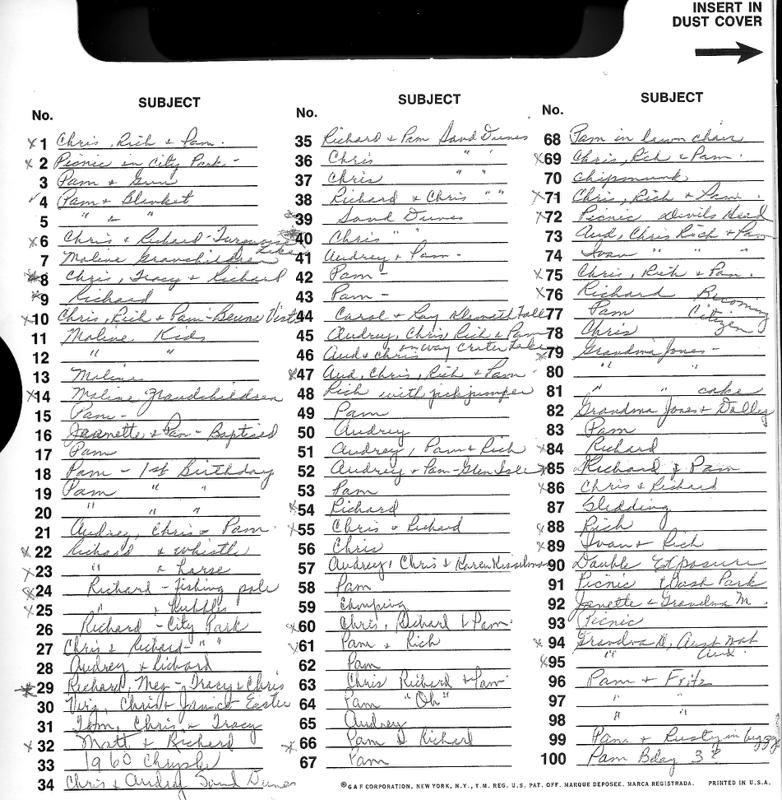 INSERT IN
DUST COVER
No. SUBJECT
x1 Chris, Rich & Pam.
x2 Picnic in City Park -
3 Pam & Gun
4 Pam & Blanket
5 " & "
x6 Chris & Richard - Turquoise Lake
7 Moline Granchildren
x8 Chris, Tracy & Richard
x9 Richard
x10 Chris, Rich & Pam - Beuna Vista
11 Moline Kids
12 " "
13 Molines
x14 Moline Grandchildren
15 Pam -
16 Jeannette & Pam - Baptised
17 Pam
18 Pam - 1st Birthday
19 Pam " "
20 " "
21 Audrey, Chris & Pam.
x22 Richard & whistle
x23 " & horse
x24 Richard - fishing pole
x25 " & bubbles
26 Richard - City Park
27 Chris & Richard - " "
28 Audrey & Richard
x29 Richard, Meg - Tracy & Chris
30 Virg, Chris & Janice Easter
31 Tom, Chris & Tracy
x32 Matt & Richard
33 1960 Chrysler
34 Chris & Audrey Sand Dunes
No. SUBJECT
35 Richard & Pam Sand Dunes
36 Chris " "
37 Chris " "
38 Richard & Chris " "
39 Sand Dunes
40 Chris " "
41 Audrey & Pam -
42 Pam -
43 Pam -
44 Carol & Ray Klamath Falls
45 Audrey, Chris Rich & Pam
46 Aud & Chris on way Crater Lake
x47 Aud, Chris, Rich & Pam -
48 Rich with
49 Pam
50 Audrey
51 Audrey, Pam & Rich
52 Audrey & Pam - Glen Isle
53 Pam
x54 Richard
x55 Chris & Richard
56 Chris
57 Audrey, Chris & Karen
58 Pam
59 Chomping
x60 Chris, Richard & Pam
61 Pam & Rich
62 Pam
63 Chris Richard & Pam
64 Pam "Oh"
65 Audrey
x66 Pam & Richard
67 Pam
No. SUBJECT
68 Pam in lawn chair
x69 Chris, Rich & Pam.
70 Chipmunk
x71 Chris, Rich & Pam.
x72 Picnic Devils Head
73 Aud, Chris Rich & Pam
74 Ivan " " "
x75 Chris, Rich & Pam.
x76 Richard Becoming
77 Pam Citizen
78 Chris
x79 Grandma Jones -
80 " "
81 " " cake
82 Grandma Jones & Dolley
83 Pam
x84 Richard
x85 Richard & Pam
x86 Chris & Richard
87 Sledding
x88 Rich
x89 Ivan & Rich
x90 Double Exposure
91 Picnic Wash Park
92 Janette & Grandma M.
93 Picnic
x94 Grandma M, Aunt Nat
x95 " Aud.
96 Pam & Fritz
97 " "
98 " "
99 Pam & Rusty in buggy
100 Pam Bday 3?
© G A F CORPORATION, NEW YORK, N.Y., T.M. REG. U.S. PAT. OFF. MARQUE DEPOSEE. MARCA REGISTRADA. PRINTED IN U.S.A.